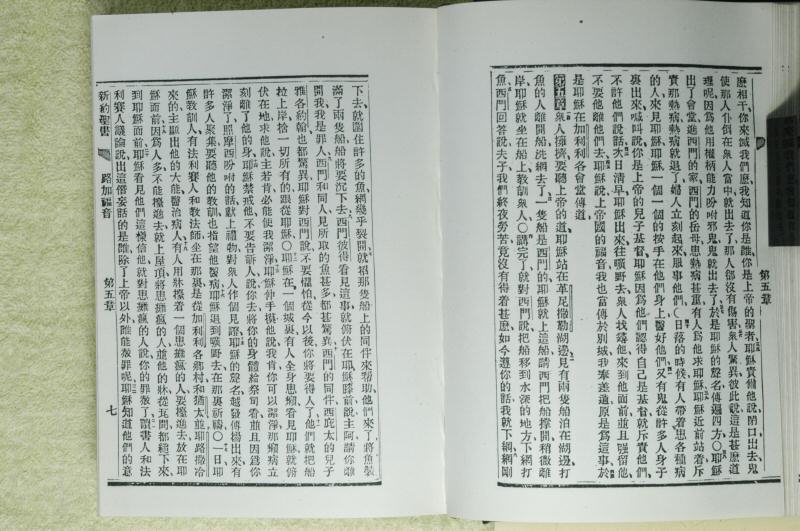 麽相干、你來滅我們麽、我知道你是誰、你是上帝的聖者、耶穌責備他說、閉口出去、鬼
使那人仆倒在衆人當中、就出去了、那人都沒有傷害、衆人驚異、彼此說、這是甚麽道
理呢、因爲他用權柄能力吩咐邪鬼、鬼就出去了、於是耶穌的聲名、傳遍四方、○耶穌
出了會堂、進西門的家、西門的岳母患熱病甚重、有人爲他求耶穌、耶穌近前站着、斥
責那熱病、熱病就退了、婦人立刻起來服事他們、○日落的時候、有人帶着患各種病
的人、來見耶穌、耶穌一個一個的按手在他們身上、醫好他們、又有鬼從許多人身子
裏出來、喊叫說、你是上帝的兒子基督、耶穌因爲他們認得自己是基督、就斥責他們、
不許他們說話、次日清早、耶穌出來往曠野去、衆人找尋他、來到他面前、並且强留他
不要他離他們去、耶穌說、上帝國的福音、我也當傳於別城、我奉差遣原是爲這事、於
是耶穌在加利利各會堂傳道、
第五章 衆人擁擠、要聽上帝的道、耶穌站在革尼撒勒湖邊、見有兩隻船泊在湖邊、打
魚的人、離開船洗網去了、一隻船是西門的、耶穌就上這船、請西門把船撑開、稍微離
岸、耶穌就坐在船上敎訓衆人、○講完了就對西門說、把船移到水深的地方、下網打
魚、西門回答說、夫子、我們終夜勞苦、竟沒有得着甚麽、如今遵你的話、我就下網、網剛
第五章
下去、就圈住許多的魚、網幾乎裂開、就招那隻船上的同伴來幫助、他們來了、將魚裝
滿了兩隻船、船將要沉下去、西門彼得看見這事、就俯伏在耶穌膝前說、主阿、請你離
開我、我是罪人、西門和同人、見所取的魚甚多、都甚驚異、西門的同伴西庇太的兒子
雅各約翰、也都驚異、耶穌對西門說、不要懼怕、從今以後、你將要得人了、他們就把船
拉上岸、捨一切所有的、跟從耶穌、○耶穌在一個城裏、有人全身患癩、看見耶穌、就俯
伏在地、求他說、主若肯、必能使我潔淨、耶穌伸手摸他說、我肯、你可以潔淨、那癩病立
刻離了他的身、耶穌禁戒他、不要告訴人、說你去將你的身體給祭司看、並且因爲你
潔淨了、照摩西吩咐的話獻上禮物、對衆人作個見證、耶穌的聲名越發傳揚出來、有
許多人聚集、要聽他的敎訓、也指望他醫病、耶穌退到曠野去、在那裏祈禱、○一日耶
穌敎訓人、有法利賽人和敎法師坐在那裏、是從加利利各鄉村和猶太並耶路撒冷
來的、主顯出他的大能、醫治病人、有人用牀擡着一個患癱瘋的人、要擡進去、放在耶
穌面前、因爲人多、不能擡進去、就上屋頂、將患癱瘋的人、並他的牀、從瓦間都縋下來、
到耶穌面前、耶穌看見他們這樣信他、就對患癱瘋的人說、你的罪赦了、讀書人和法
利賽人議論說、出這僭妄話的是誰、除了上帝以外、誰能赦罪呢、耶穌知道他們的意
新約聖書 路加福音 第五章 七